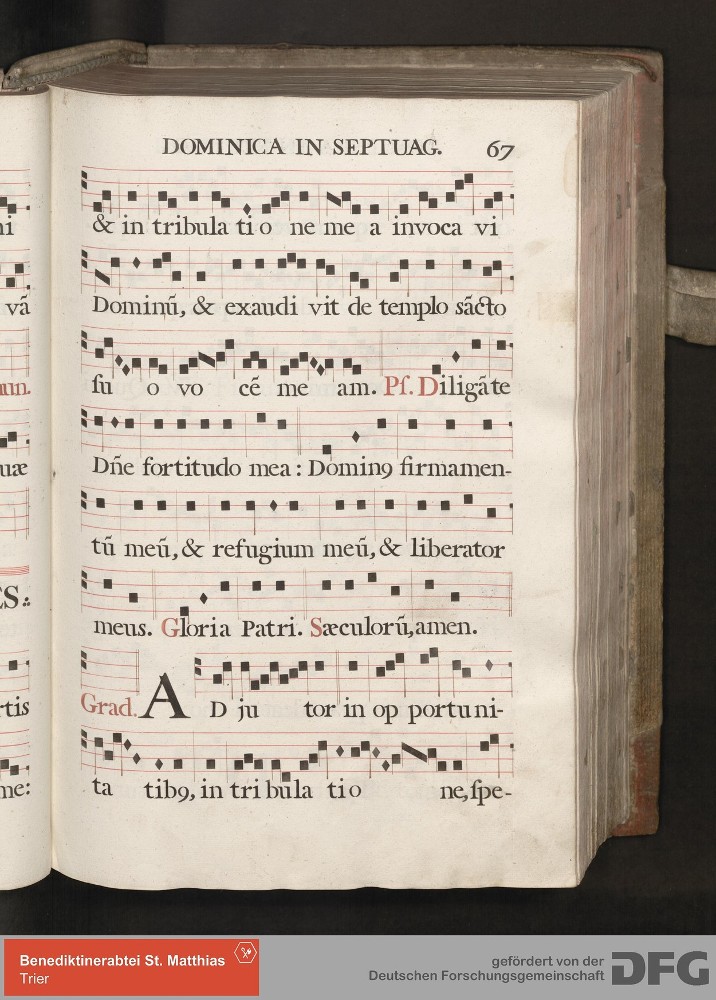 DOMINICA IN SEPTUAG. 67
& in tribula tio ne me a invoca vi
Dominū, & exaudi vit de templo sācto
ſu o vo cē me am. Pſ. Diligāte
Dn̄e fortitudo mea: Dominꝯ firmamen-
tū meū, & refugium meū, & liberator
meus. Gloria Patri. Sæculorū, amen.
Grad. AD ju tor in op portu ni-
ta tibꝯ, in tri bu la tio ne, ſpe-
ni
vā
un.
uæ
ES:
tis
me:
Benediktinerabtei St. Matthias
Trier
gefördert von der
Deutschen Forschungsgemeinschaft DFG